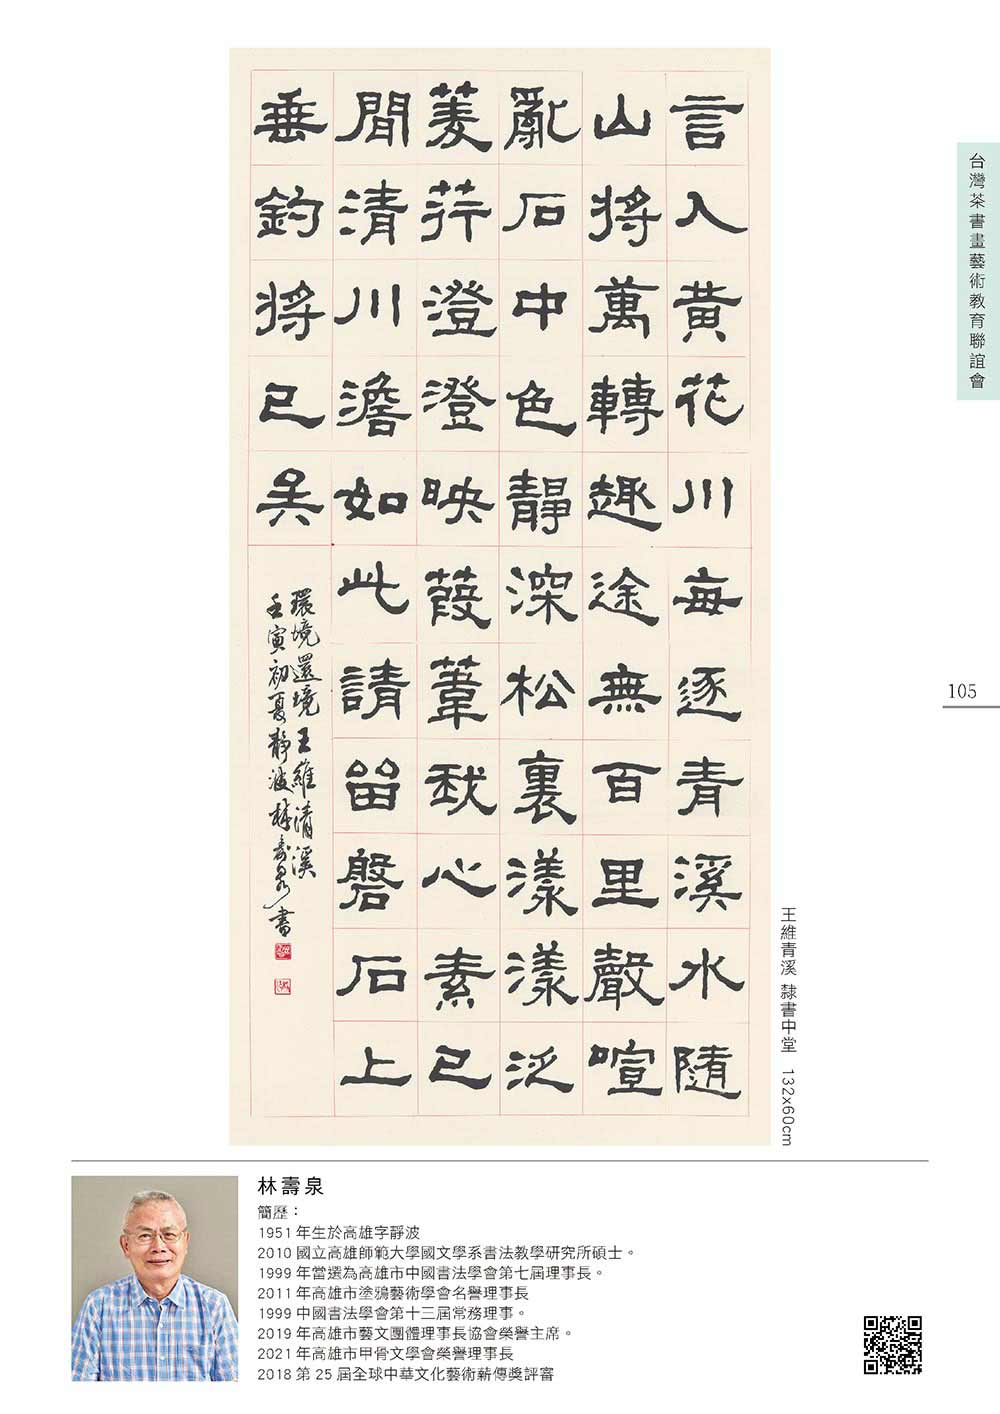 言入黃花川每逐青溪水隨
山將萬轉趣途無百里聲喧
亂石中色靜深松裏漾漾泛
菱荇澄澄映葭葦我心素已
間清川澹如此請留磐石上
垂釣將已矣
環境還境王維清溪
壬寅初夏靜波林壽泉書
台灣茶書畫藝術教育聯誼會
105
王維青溪 隸書中堂 132x60cm
林壽泉
簡歷：
1951 年生於高雄字靜波
2010 國立高雄師範大學國文學系書法教學研究所碩士。
1999 年當選為高雄市中國書法學會第七屆理事長。
2011 年高雄市塗鴉藝術學會名譽理事長
1999 中國書法學會第十三屆常務理事。
2019 年高雄市藝文團體理事長協會榮譽主席。
2021 年高雄市甲骨文學會榮譽理事長
2018 第 25 屆全球中華文化藝術薪傳獎評審